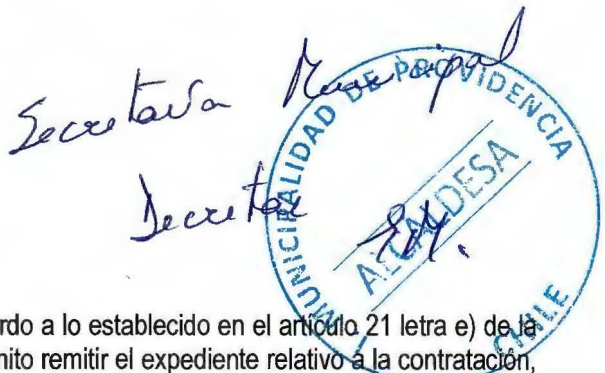 Secretaría Municipal
Decretar
MUNICIPALIDAD DE PROVIDENCIA
ALCALDESA
CHILE
rdo a lo establecido en el artículo 21 letra e) de la
nito remitir el expediente relativo a la contratación,